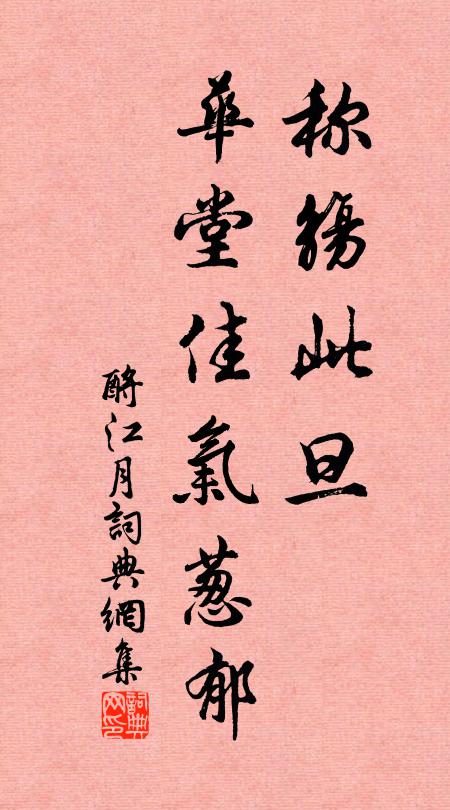 称觴此旦
華堂佳氣葱郁
酹江月詞典網集
詞典
网印